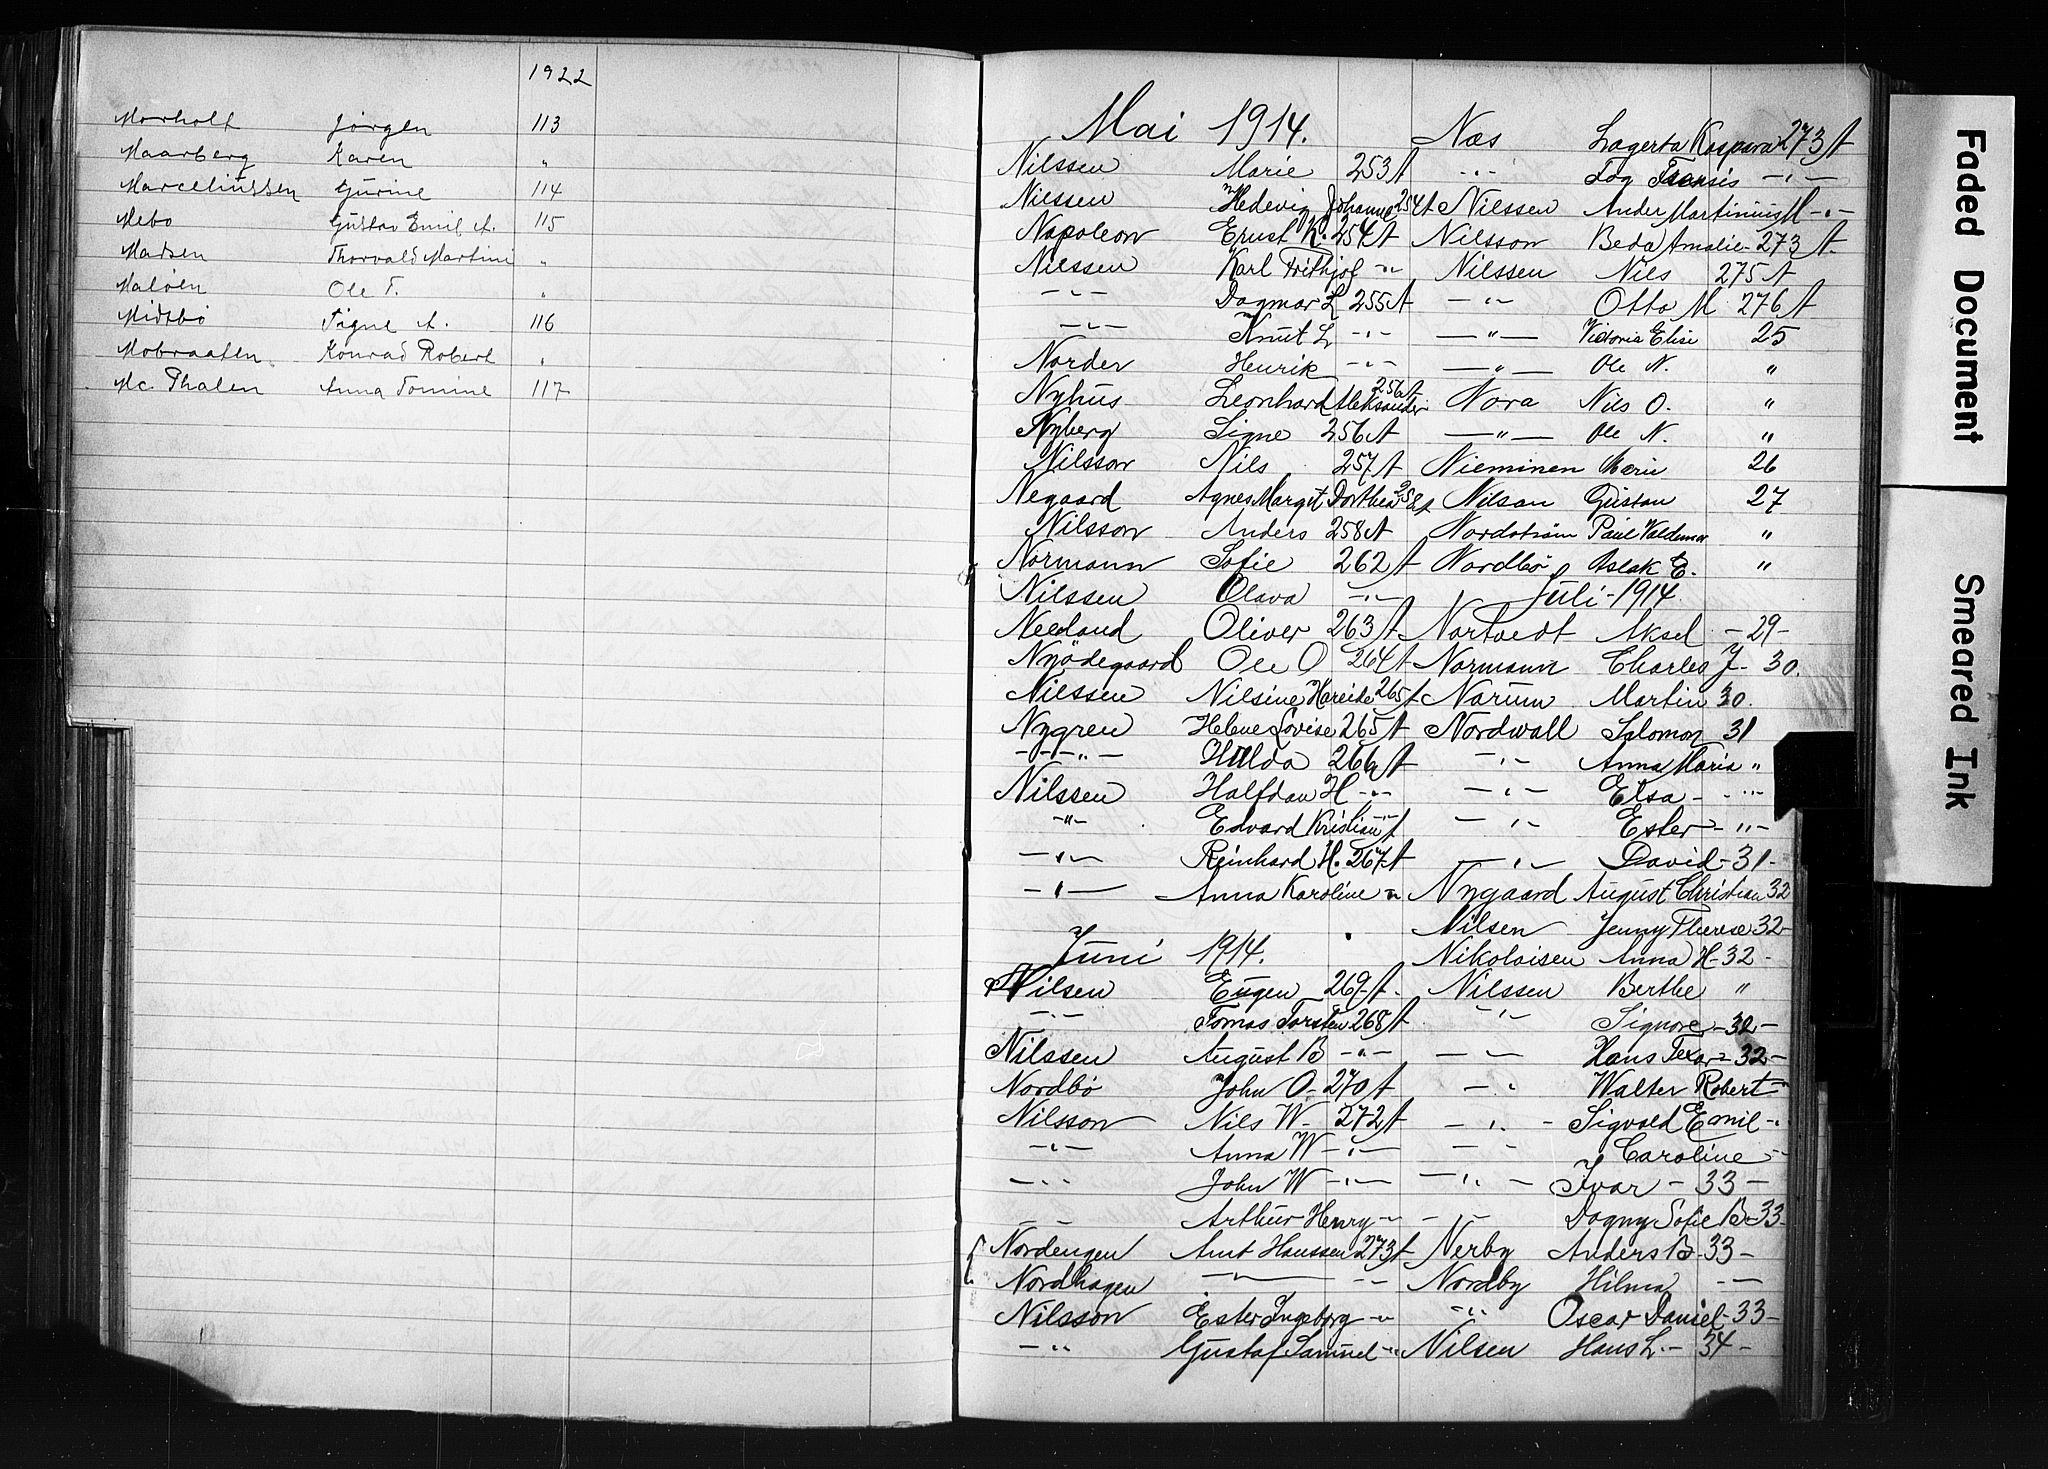 1922
Morholt Jørgen 113
Maarberg Karen "
Marceliussen Gurine 114
Mebo Gustav Emil A. 115
Madsen Thorvald Martini "
Maløen Ole T. "
Midsbö Signe A. 116
Mobraaten Konrad Robert "
Mc. Phalen Anna Tomine 117
Mai 1914.
Nilssen Marie 253 A
Nilssen Hedevig Johanne 254 A
Napoleon Ernst K. 254 A
Nilssen Karl Frithjof -"-
-"- Dagmar L 255 A
-"- Knut L -"-
Norder Henrik -"-
Nyhus Leonhard Aleksander 256 A
Nyberg Signe 256 A
Nilsson Nils 257 A
Negaard Agnes Margit Dorthea 258 A
Nilsson Anders 258 A
Normann Sofie 262 A
Nilssen Olava -"-
Neeland Oliver 263 A
Nyödegaard Ole O 264 A
Nilssen Nilsine Hareide 265 A
Nygren Helene Lovise 265 A
-"- Hulda 266 A
Nilssen Halfdan H -"-
-"- Edvard Kristian -"- A
-"- Reinhard H. 267 A
-"- Anna Karoline -"-
Juni 1914.
Nilsen Eugen 269 A.
-"- Tomas Torsten 268 A
Nilssen August B -"-
Nordbö John O. 270 A
Nilsson Nils W- 272 A
-"- Anna W -"-
-"- John W -"-
-"- Arthur Henry -"-
Nordengen Arnt Hanssen 273 A
Nordhagen -"- -"-
Nilsson Ester Ingeborg -"-
-"- Gustaf Samuel -"-
Næs Lagerta Kaspara 273 A
-"- Dag -"-
Nilssen Ander Martinius M -"-
Nilsson Beda Amalie 273 A
Nilssen Nils 275 A
-"- Otto M 276 A
-"- Victoria Elise 25
-"- Ole N. "
Nora Nils O. "
-"- Ole N. "
Nieminen Marie 26
Nilsan Gustav 27
Nordström Paul Valdemar "
Nordbö Aslak E. "
Juli-1914.
Nortvedt Aksel -29-
Normann Charles J- 30.
Narum Martin 30.
Nordwall Salomon 31
-"- Anna Maria "
-"- Elsa -"-
-"- Ester -"-
-"- David -31-
Nygaard August Christian 32
Nilsen Jenny Therese 32-
Nikolaisen Anna H-32-
Nilssen Berthe "
-"- Signore -32-
-"- Hans -32-
-"- Walter Robert -"-
-"- Sigvald Emil -"-
-"- Caroline -"-
-"- Ivar -33-
-"- Dagny Sofie B-33-
Nerby Anders B-33-
Nordby Hilma -"-
-"- Oscar Daniel -33-
Nilsen Hans L.- 34-
Faded Document
Smeared Ink